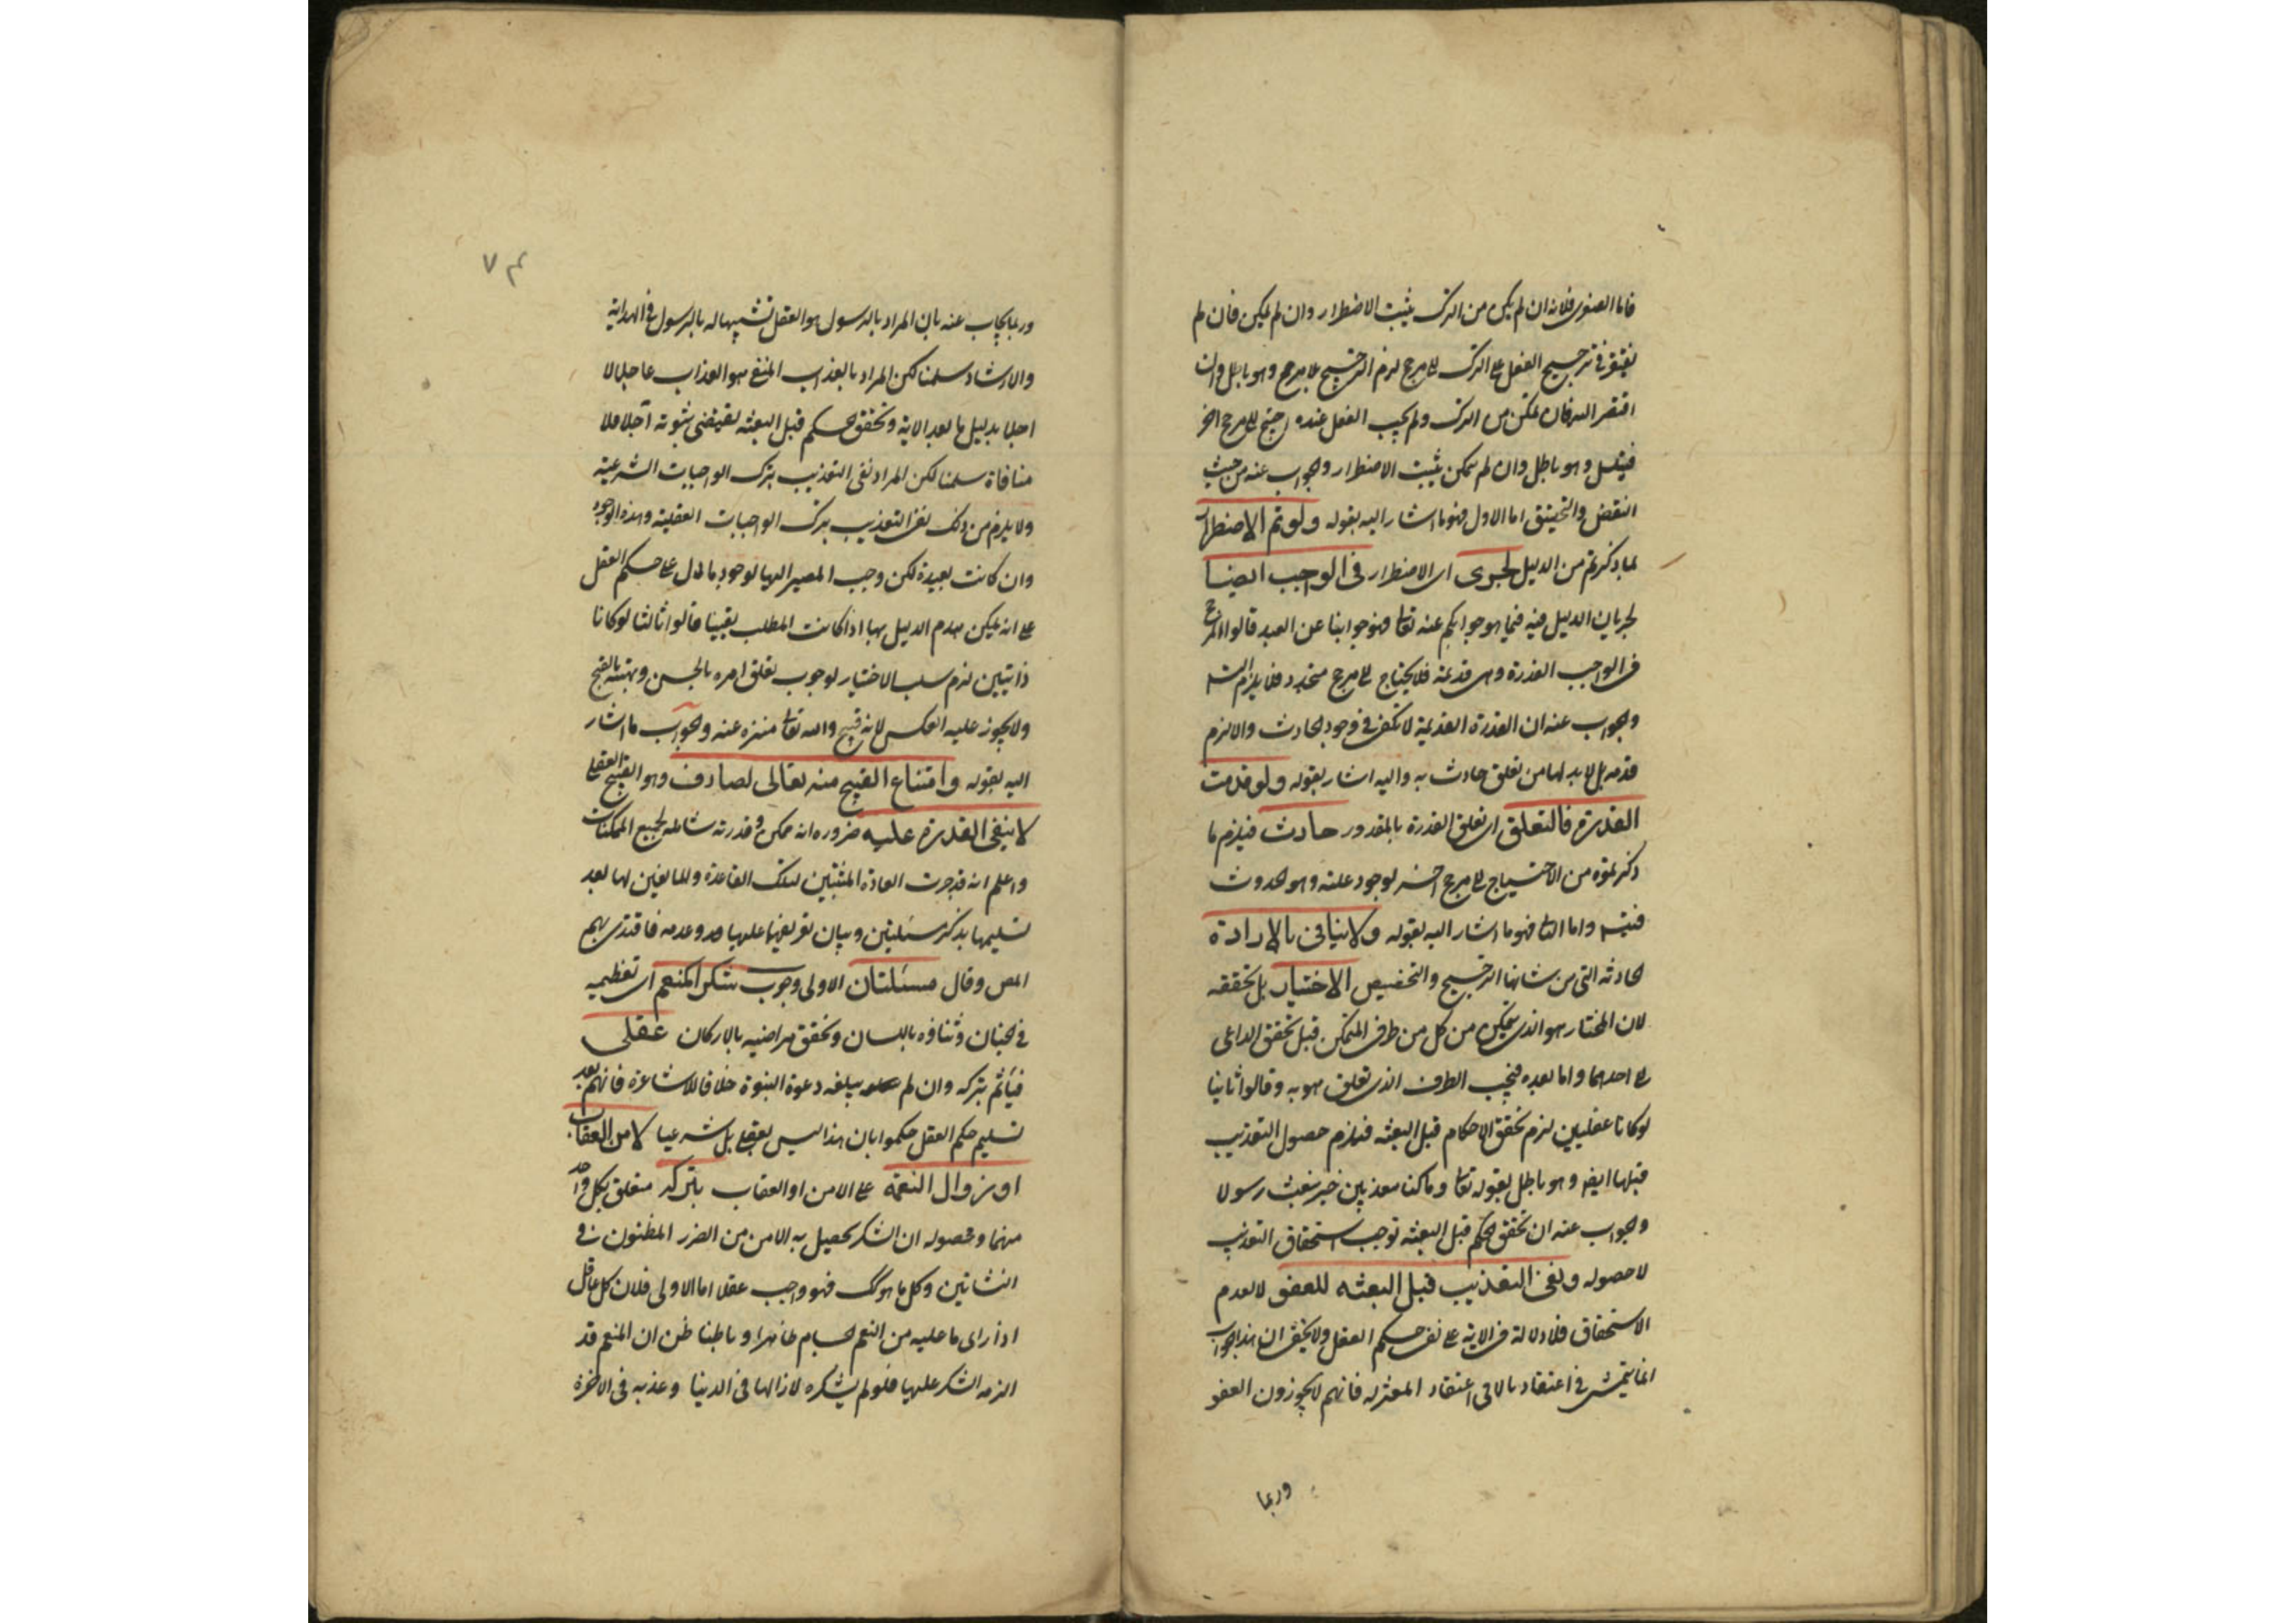 فاما الصغرى فلانه ان لم يكن من الترك يثبت الاضطرار وان لم يمكن فان لم
يفتقر في ترجيح الفعل على الترك الى مرجح لزم الترجيح بلا مرجح وهو باطل وان
افتقر اليه فان تمكن من الترك ولم يجب الفعل عنده احتيج الى مرجح اخر
فيتسلسل وهو باطل وان لم يمكن يثبت الاضطرار والجواب عنه من حيث
النقض والتحقيق اما الاول فهو ما اشار اليه بقوله ولو تم الاضطرار
بما ذكرتم من الدليل لجرى اى الاضطرار في الواجب ايضا
لجريان الدليل فيه فما هو جوابكم عنه تعا فهو جوابنا عن العبد قالوا المرجح
في الواجب القدرة وهى قديمة فلا يحتاج الى مرجح متجدد فلا يلزم التسـ
والجواب عنه ان القدرة القديمة لا تكفى في وجود الحادث والا لزم
قدمه بل لابد لها من تعلق حادث به واليه اشار بقوله ولو قدمت
القدرة فالتعلق اى تعلق القدرة بالمقدور حادث فيلزم ما
ذكرتموه من الاحتياج الى مرجح اخر لوجود علته وهو الحدوث
فيتسـ واما الثا فهو ما اشار اليه بقوله ولا ينافى بالارادة
الحادثه التى من شانها الترجيح والتخصيص الاختيار بل تحققه
لان المختار هو الذى يتمكن من كل من طرفى الممكن قبل تحقق الداعى
الى احدهما واما بعده فيجب الطرف الذى تعلق هو به وقالوا ثانيا
لو كانا عقليين لزم تحقق الاحكام قبل البعثه فيلزم حصول التعذيب
قبلها ايضا وهو باطل بقوله تعا وما كنا معذبين حتى نبعث رسولا
والجواب عنه ان تحقق الحكم قبل البعثه توجب استحقاق التعذيب
لا حصوله ونفى التعذيب قبل البعثه للعفو لا لعدم
الاستحقاق فلا دلالة في الاية على نفى حكم العقل ولا يخفى ان هذا الجواب
انما يتمشى في اعتقادنا لا في اعتقاد المعتزله فانهم لا يجوزون العفو
وربما
٧٤
وربما يجاب عنه بان المراد بالرسول هو العقل تشبيها له بالرسول في الهداية
والارشاد سلمنا لكن المراد بالعذاب المنفى هو العذاب عاجلا لا
اجلا بدليل ما بعد الاية وتحقق الحكم قبل البعثه يقتضى ثبوته آجلا فلا
منافاة سلمنا لكن المراد نفى التعذيب بترك الواجبات الشرعية
ولا يلزم من ذلك نفى التعذيب بترك الواجبات العقلية وهذه الوجوه
وان كانت بعيدة لكن وجب المصير اليها لوجود ما دل على حكم العقل
على انه يمكن هدم الدليل بها اذا كانت المطلب يقينيا قالوا ثالثا لو كانا
ذاتيين لزم سلب الاختيار لوجوب تعلق امره بالحسن ونهيه بالقبح
ولا يجوز عليه العكس لانه قبيح والله تعا منزه عنه والجواب ما اشار
اليه بقوله وامتناع القبيح منه تعالى لصارف وهو القبح العقلى
لا ينفى القدرة عليه ضروره انه ممكن وقدرته شامله لجميع الممكنات
واعلم انه قد جرت العادة المثبتين لتلك القاعدة وللمانعين لها بعد
تسليمها بذكر مسئلتين وبيان تفريعهما عليها وعدمه فاقتدى بهم
المص وقال مسئلتان الاولى وجوب شكر المنعم اى تعظيمه
في الجنان وثنائه باللسان وتحقق مراضيه بالاركان عقلى
فيأثم بتركه وان لم يبلغه دعوة النبوة خلافا للاشاعرة فانهم بعد
تسليم حكم العقل حكموا بان هذا ليس بعقلى بل شرعيا لامن العقاب
او زوال النعمة على الامن او العقاب بتركه متعلق بكل واحد
منهما ومحصوله ان الشكر يحصل به الامن من الضرر المظنون في
النشاتين وكل ما هو كك فهو واجب عقلا اما الاولى فلان كل عاقل
اذا راى ما عليه من النعم الجسام ظاهرا وباطنا ظن ان المنعم قد
الزمه الشكر عليها فلو لم يشكره لازالها في الدنيا وعذبه في الاخرة